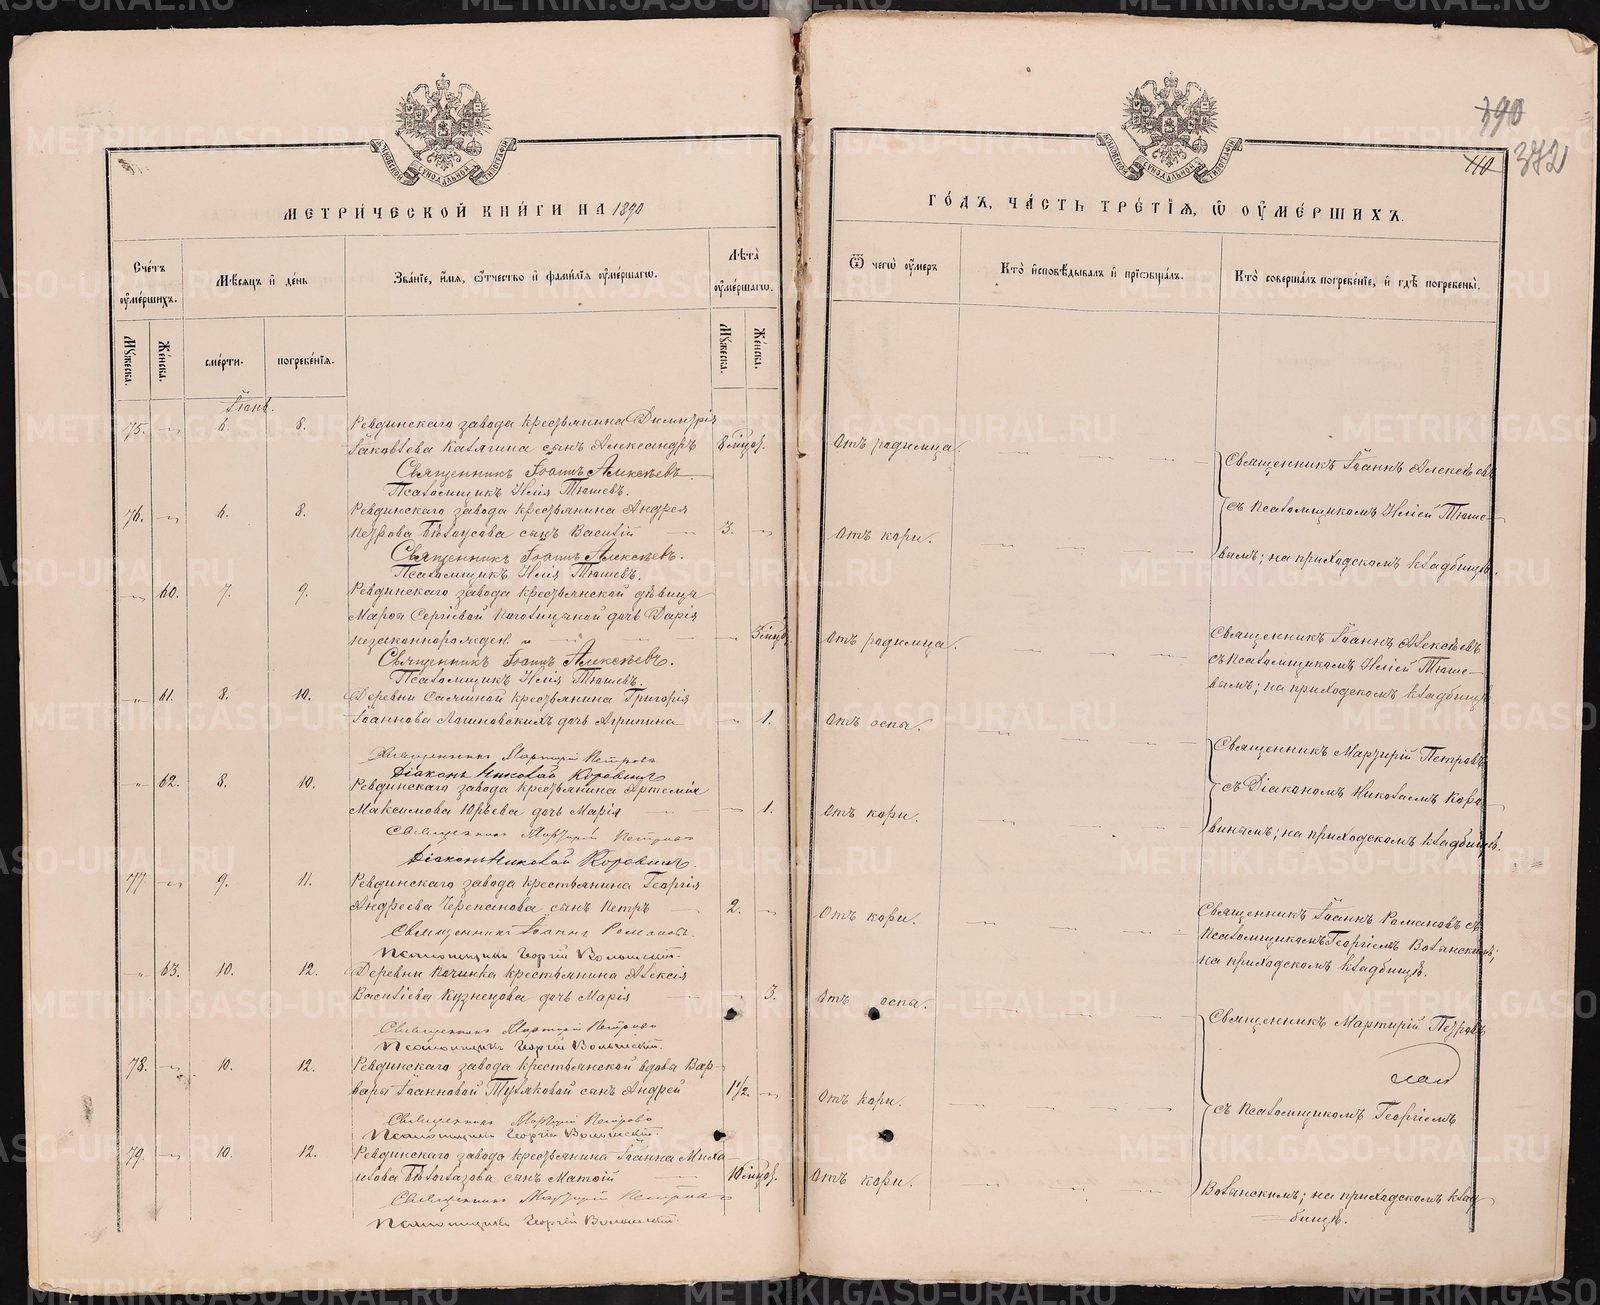 МЕТРИ́ЧЕСКОЙ КНИ́ГИ НА 1890
Сче́тъ ᲂу҆ме́ршихъ.
Мѣ́сяцъ и҆ де́нь
Зва́нїе, и҆́мя, ѻ҆́тчество и҆ фами́лїя ᲂу҆ме́ршагѡ.
Лѣ́та ᲂу҆ме́ршагѡ.
Мꙋ́жеска.
Же́нска.
сме́рти.
погребе́нїя.
Мꙋ́жеска.
Же́нска.
75. 6. 8. Ревдинскаго завода крестьянина Димитрія
Іаковлева Катягина сынъ Александръ 8 мцов.
Священникъ Іоаннъ Алексѣевъ
Псаломщикъ Илія Тюшевъ.
76. 6. 8. Ревдинскаго завода крестьянина Андрея
Петрова Бѣлоусова сынъ Василій 3.
Священникъ Іоаннъ Алексѣевъ.
Псаломщикъ Илія Тюшевъ.
60. 7. 9. Ревдинскаго завода крестьянской дѣвицы
Марѳы Сергіевой дочь Дарія
незаконнорожден.
Священникъ Іоаннъ Алексѣевъ.
Псаломщикъ Илія Тюшевъ.
61. 8. 10. Деревни крестьянина Григорія
Іоаннова Логиновскихъ дочь Агрипина 1.
Священникъ Мартирій Петровъ
Діаконъ Николай Коровинъ
62. 8. 10. Ревдинскаго завода крестьянина Артемія
Максимова Юрьева дочь Марія 1.
Священникъ Мартирій Петровъ
Діаконъ Николай Коровинъ.
77. 9. 11. Ревдинскаго завода крестьянина Георгія
Андреева Черепанова сынъ Петръ 2.
Священникъ Іоаннъ Романовъ.
Псаломщикъ Георгій
63. 10. 12. Деревни Починка крестьянина Алексія
Василіева Кузнецова дочь Марія 3.
Священникъ Мартирій Петровъ
Псаломщикъ Георгій
78. 10. 12. Ревдинскаго завода крестьянской вдовы Вар-
вары Іоанновой сынъ Андрей 1 1/2.
Священникъ Мартирій Петровъ
Псаломщикъ Георгій
79. 10. 12. Ревдинскаго завода крестьянина Іоанна Миха-
илова Бѣлоглазова сынъ Матѳій 10 мцов.
Священникъ Мартирій Петровъ
Псаломщикъ Георгій
390
110 372
ГО́ДЪ, ЧА́СТЬ ТРЕ́ТЇЯ, Ѡ҆ ᲂУ҆МЕ́РШИХЪ.
Ѿ чегѡ̀ ᲂу҆́меръ
Кто̀ и҆сповѣ́дывалъ и҆ прїѡбща́лъ.
Кто̀ соверша́лъ погребе́нїе, и҆ гдѣ̀ погребены̀.
Отъ родимца.
Священникъ Іоаннъ Алексѣевъ
съ псаломщикомъ Иліей Тюше-
Отъ кори.
вымъ; на приходскомъ кладбищѣ.
Отъ родимца.
Священникъ Іоаннъ Алексѣевъ
съ псаломщикомъ Иліей Тюше-
вымъ; на приходскомъ кладбищѣ
Отъ оспы.
Священникъ Мартирій Петровъ
съ Діакономъ Николаемъ Коро-
Отъ кори.
винымъ; на приходскомъ кладбищѣ.
Отъ кори.
Священникъ Іоаннъ Романовъ съ
псаломщикомъ Георгіемъ
на приходскомъ кладбищѣ.
Отъ оспы.
Священникъ Мартирій Петровъ
Отъ кори.
съ псаломщикомъ Георгіемъ
Отъ кори.
на приходскомъ клад-
бищѣ.
METRIKI.GASO-URAL.RU